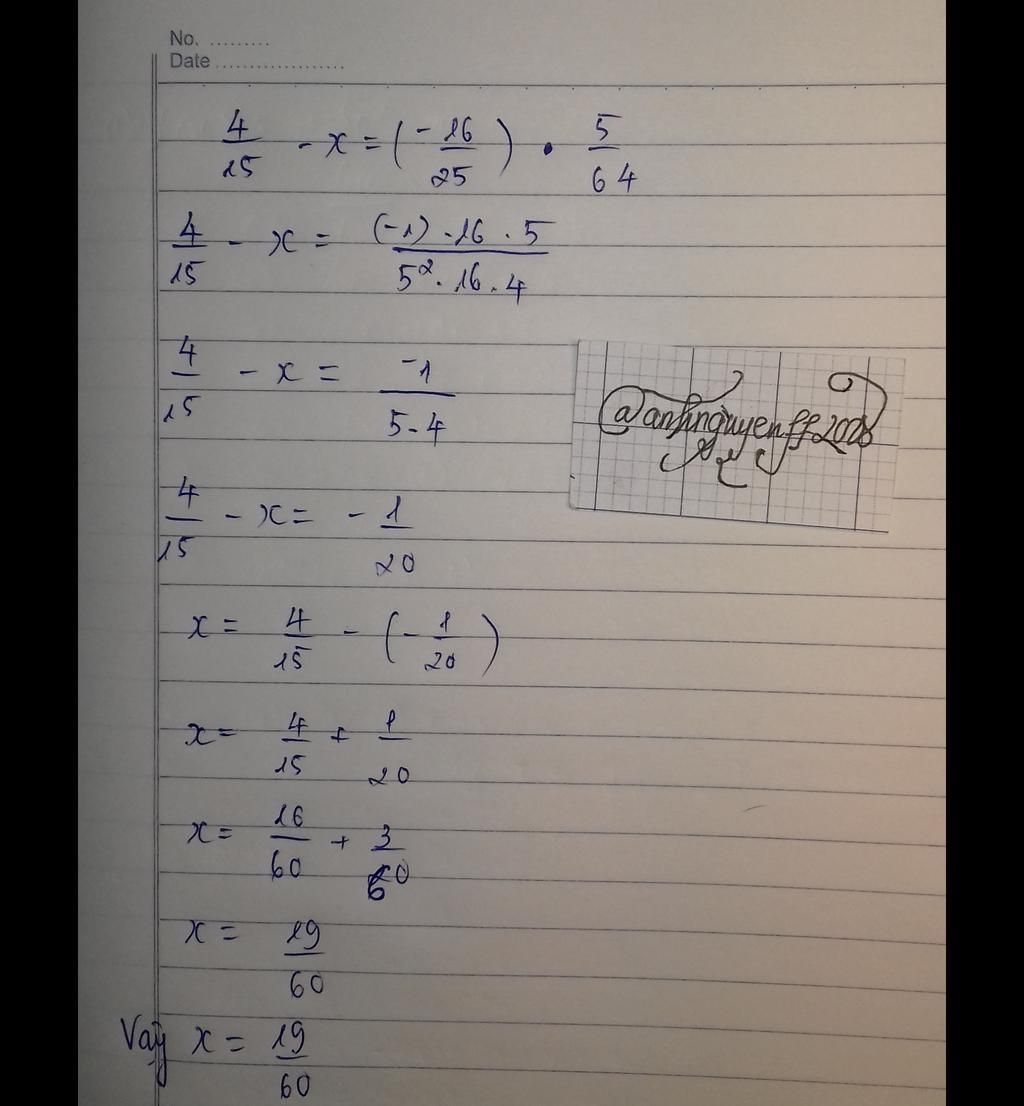 No. .........
Date ...................
4/15 - x = (-16/25) . 5/64
4/15 - x = (-1) . 16 . 5 / 5² . 16 . 4
4/15 - x = -1/5.4
@anhnguyenff2008
4/15 - x = - 1/20
x = 4/15 - (- 1/20)
x = 4/15 + 1/20
x = 16/60 + 3/60
x = 19/60
Vậy x = 19/60